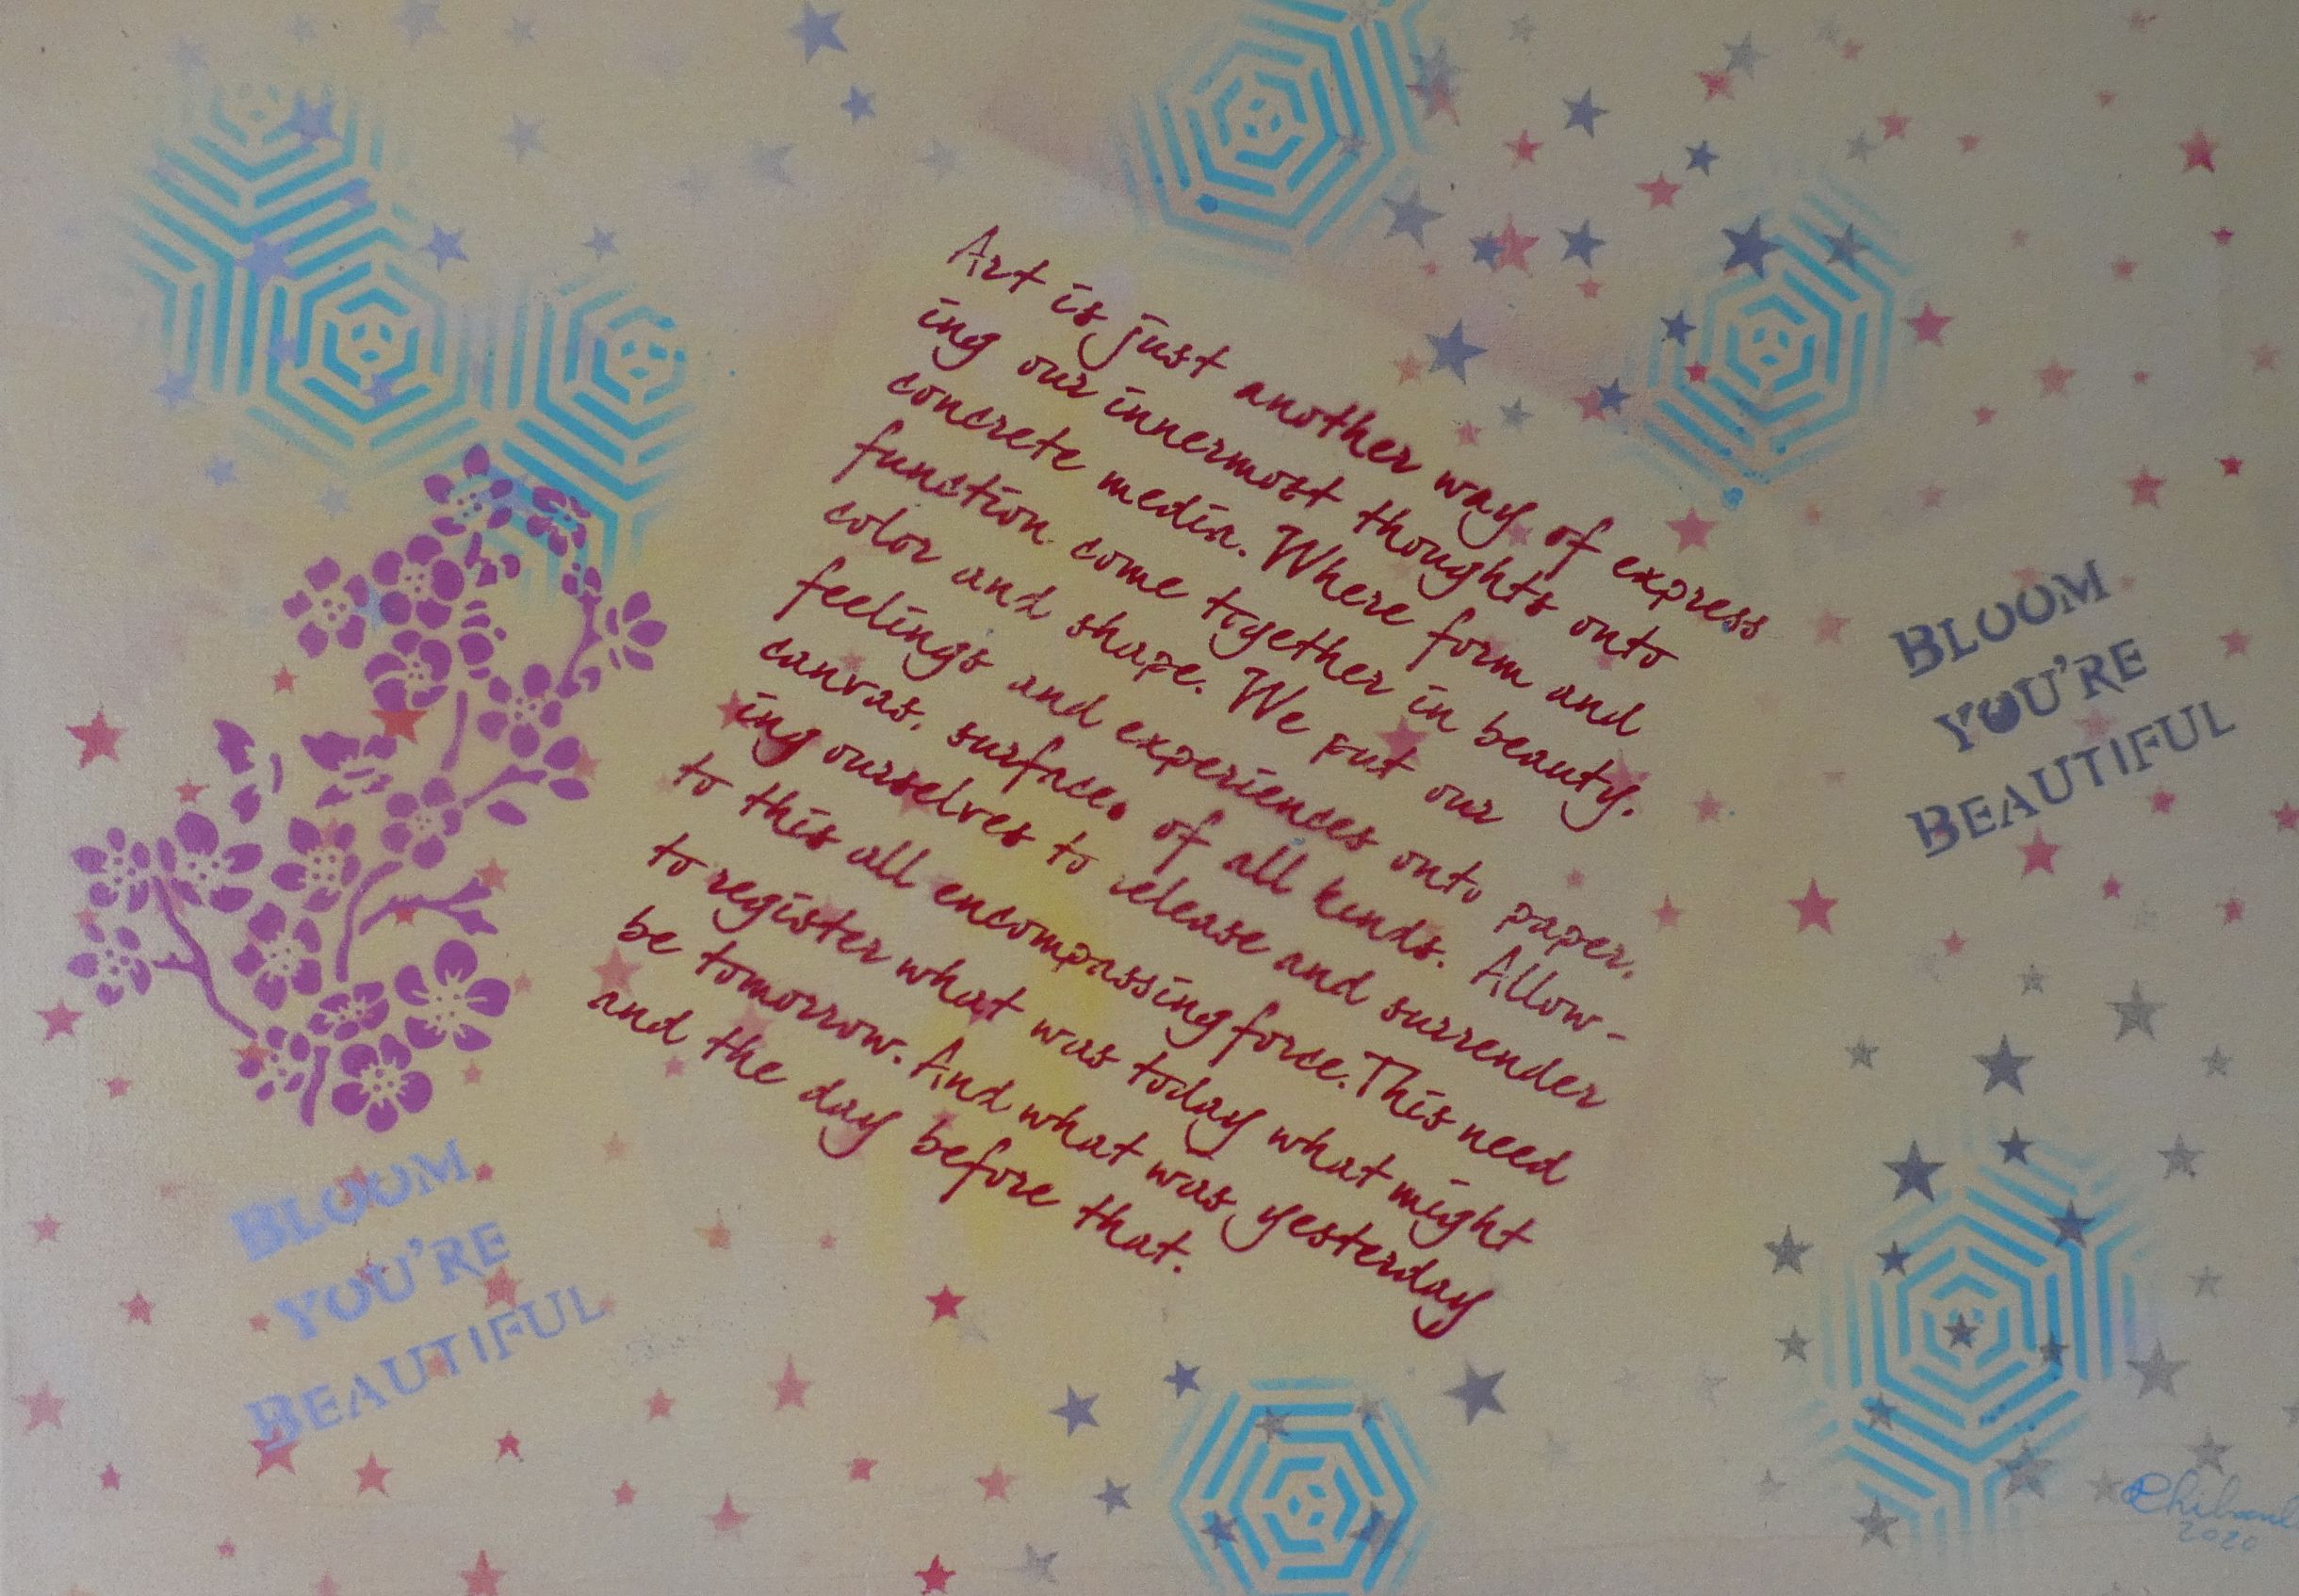 Art is just another way of express
ing our innermost thoughts onto
concrete media. Where form and
function come together in beauty.
color and shape. We put our
feelings and experiences onto paper,
canvas, surfaces of all kinds. Allow-
ing ourselves to release and surrender
to this all encompassing force. This need
to register what was today what might
be tomorrow. And what was yesterday
and the day before that.
BLOOM
YOU'RE
BEAUTIFUL
BLOOM
YOU'RE
BEAUTIFUL
2020